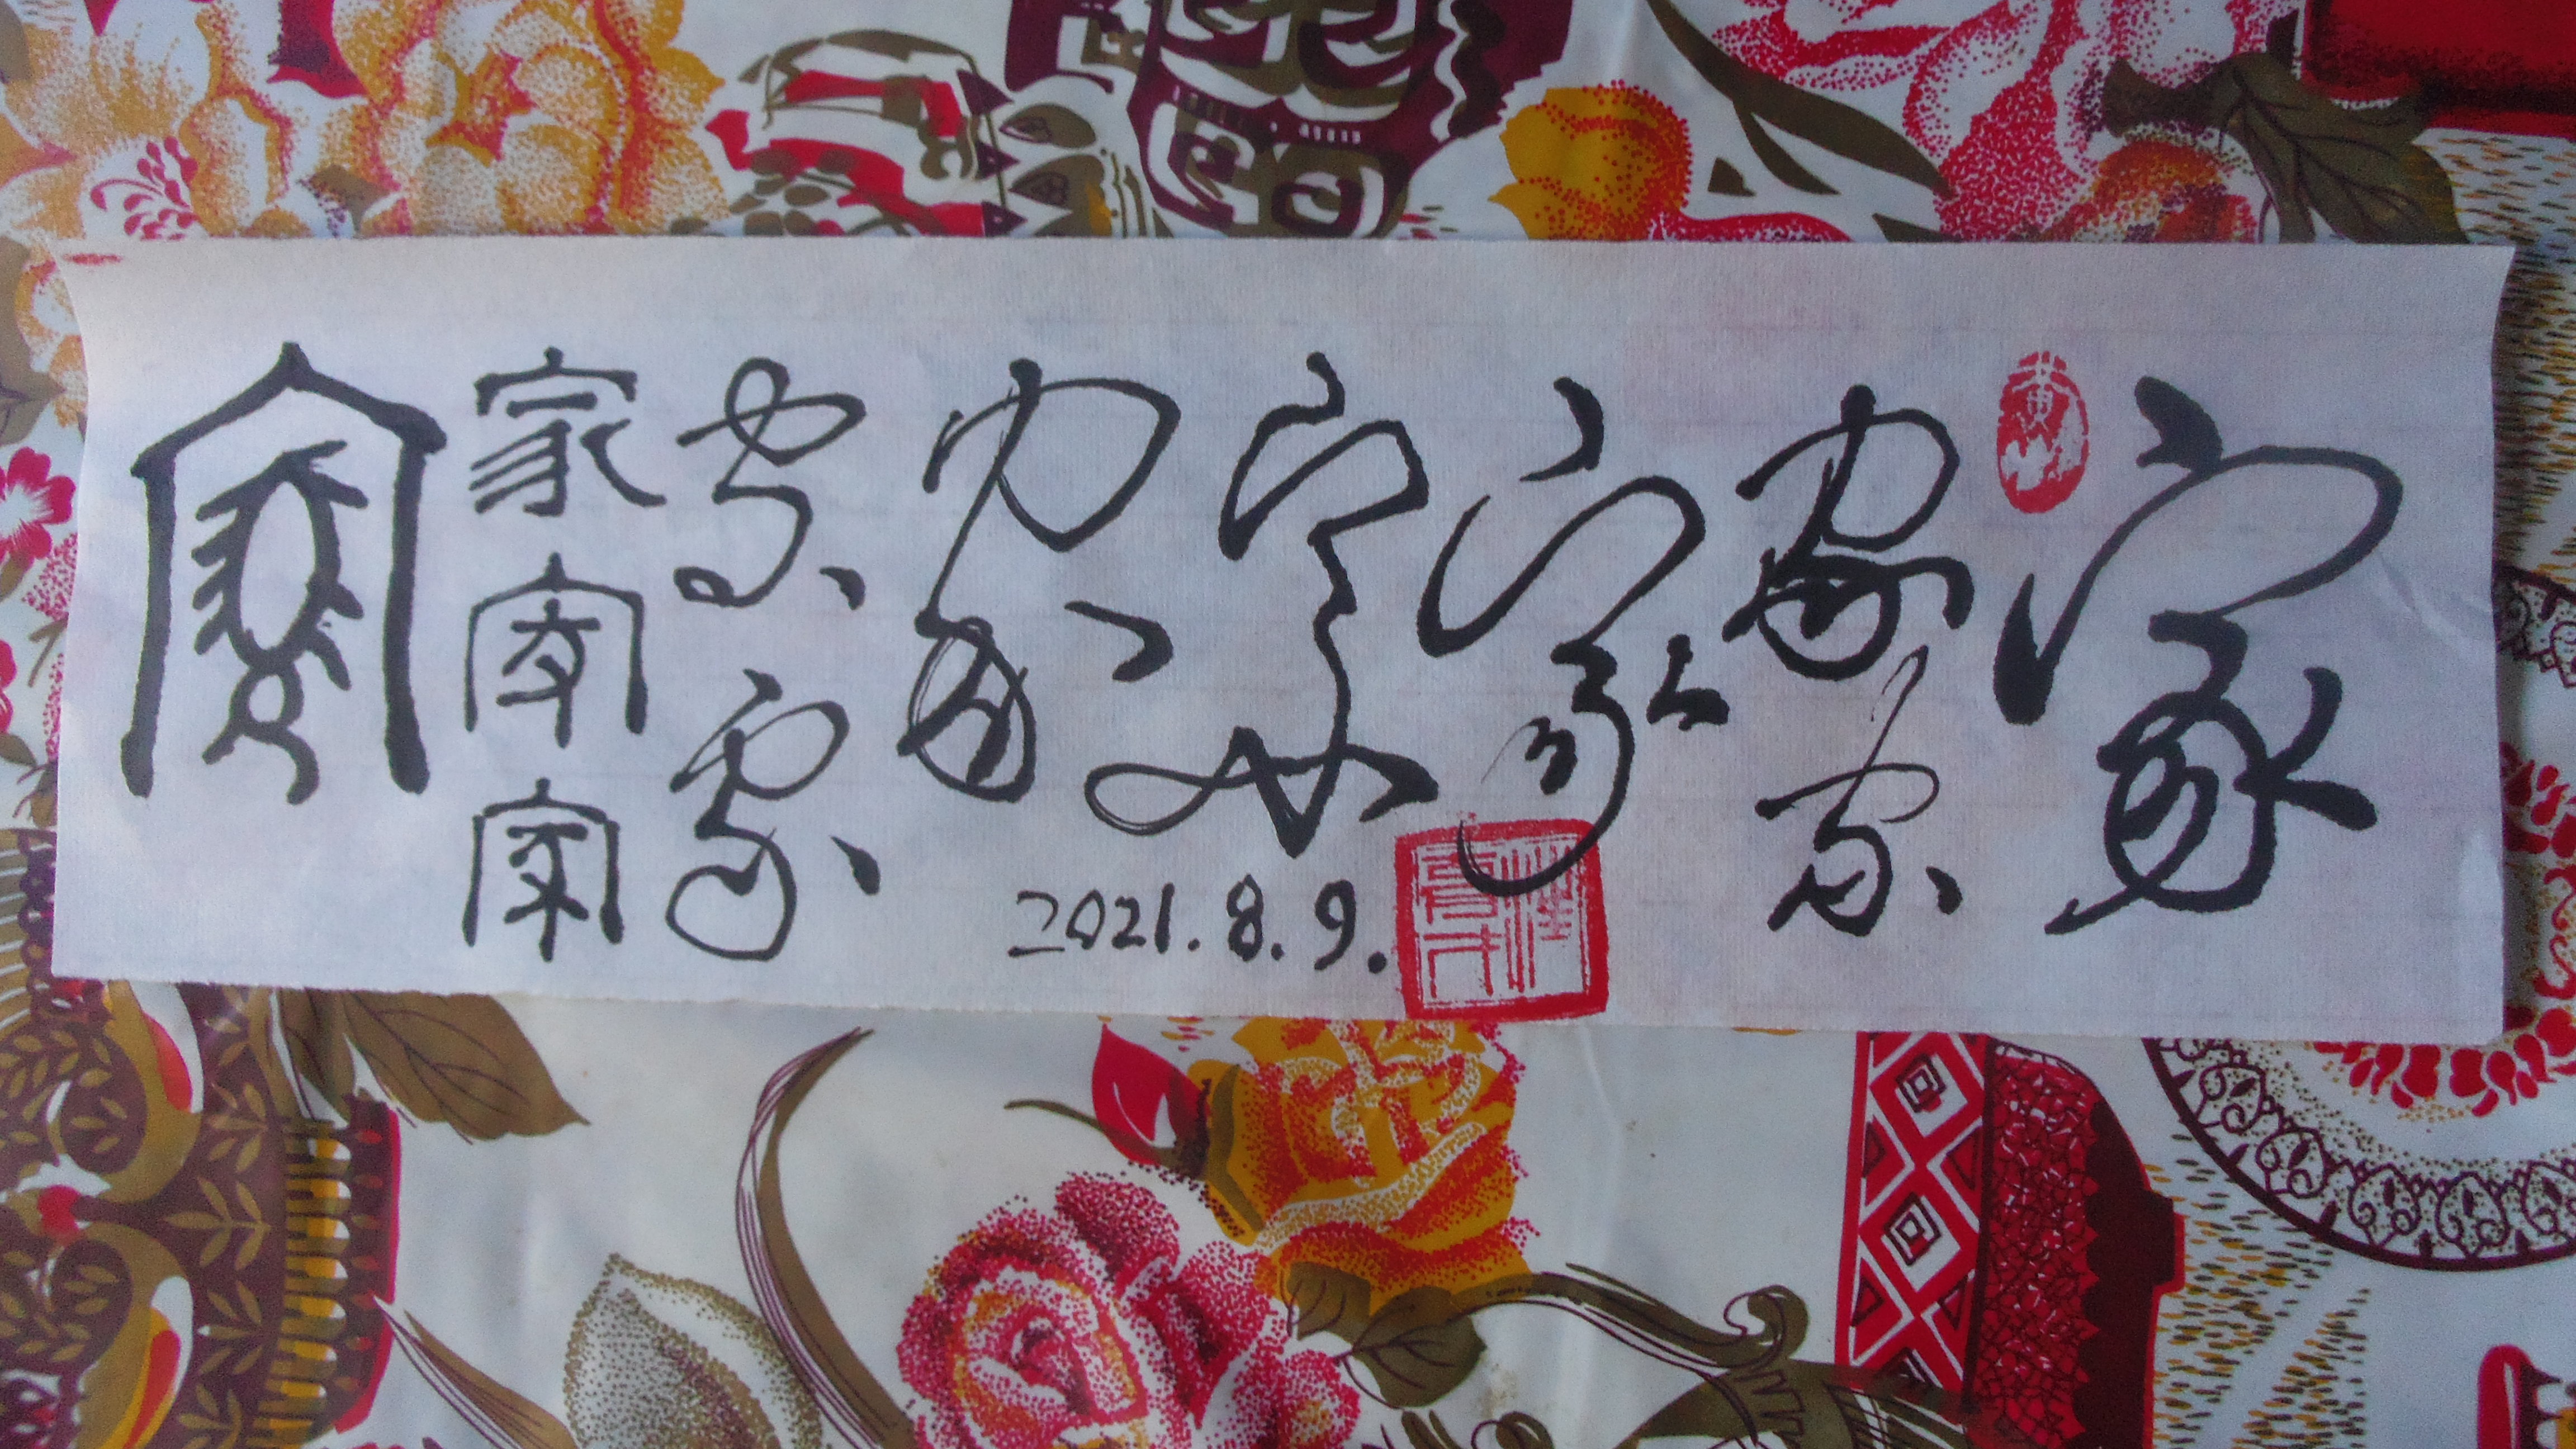 家
家
家
家
家
家
家
家
家
家
家
家
2021.8.9.